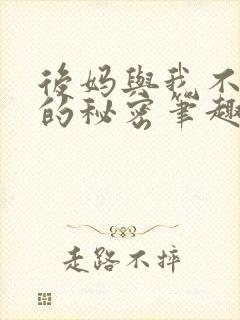 後妈與我不
的秘密筆趣
走路不摔